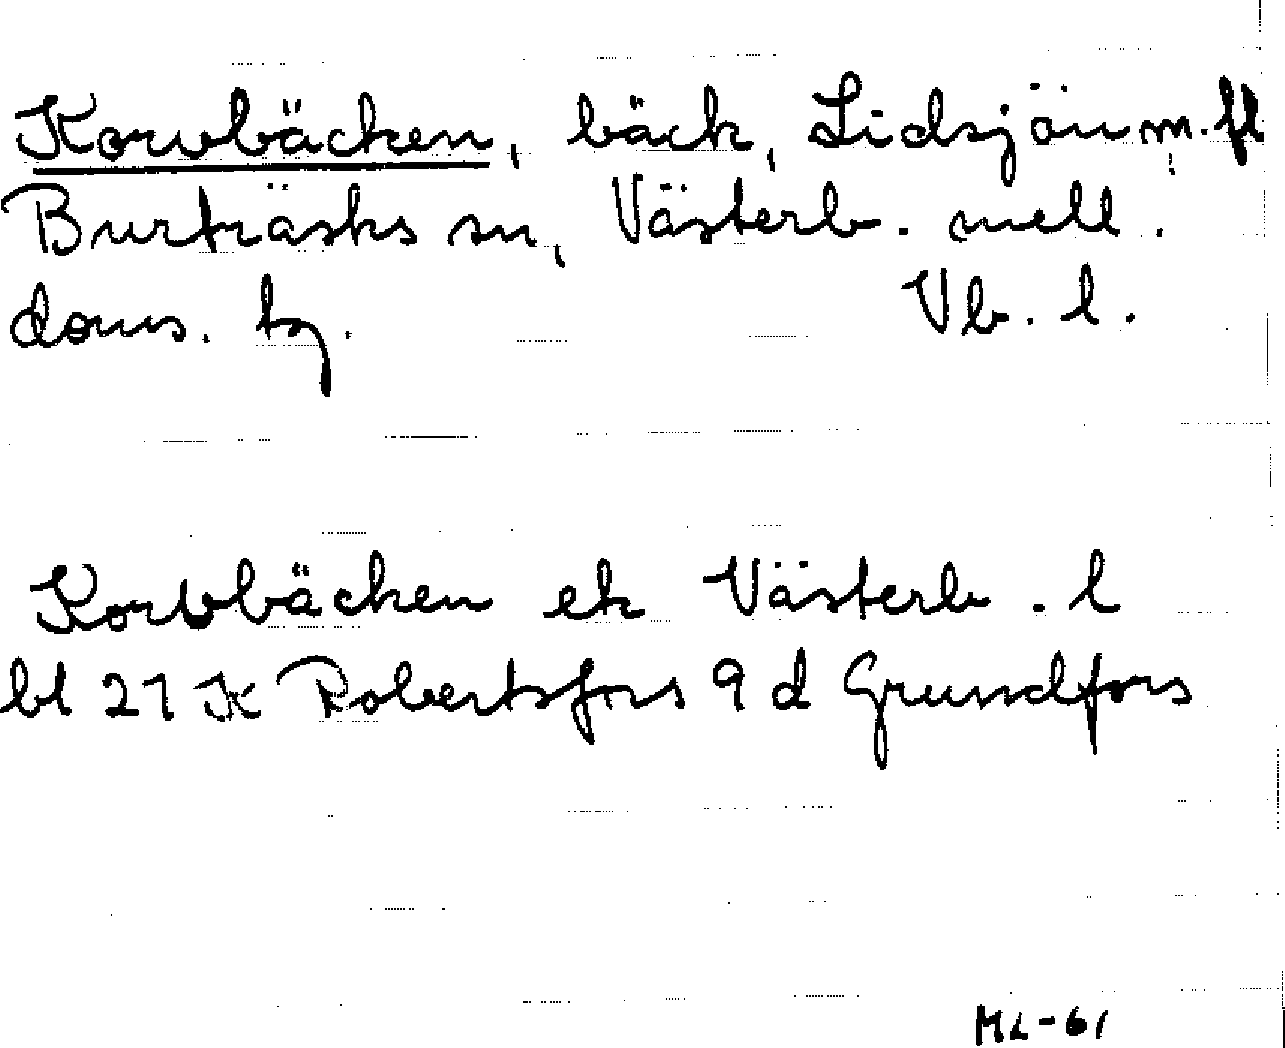 Korvbäcken, bäck, Lidsjön m. fl
Burträsks sn, Västerb. mell.
doms. tg. Vb. l.
Korvbäcken ek Västerb. l
bl 21 K Robertsfors 9 d Grundfors
ML-61